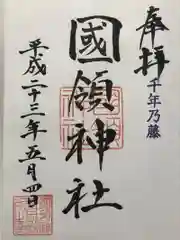 奉拝
千年乃藤
國領神社
平成二十三年五月四日